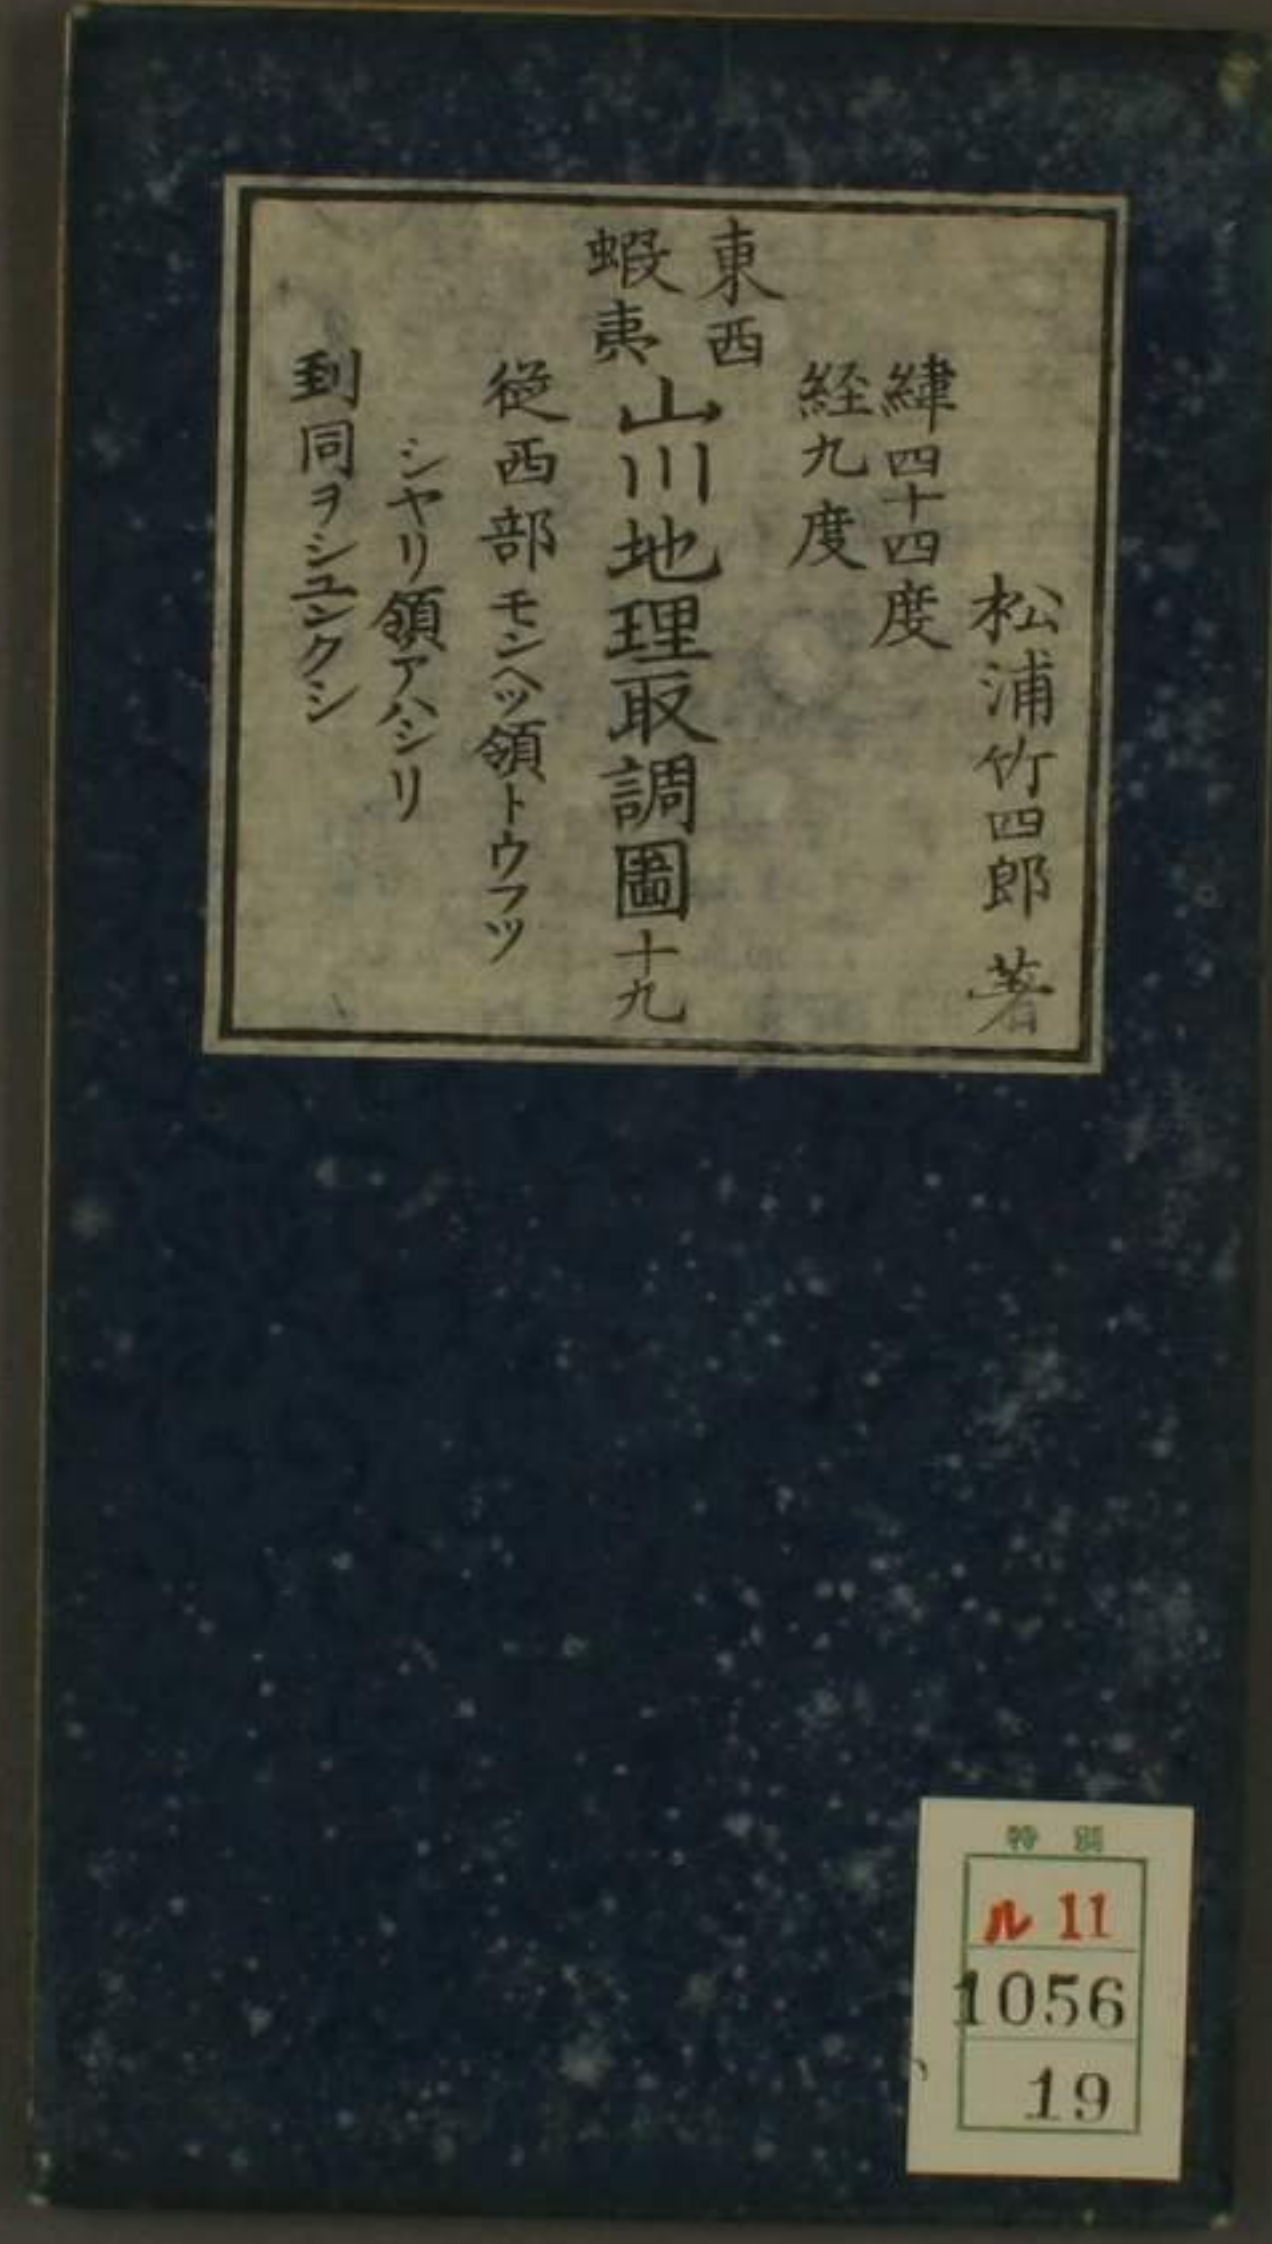 松浦竹四郎 著
緯四十四度
経九度
東西
蝦夷
山川地理取調圖十九
從西部モンヘツ領トウフツ
シヤリ領アハシリ
到同ヲシユンクシ
特別
ル 11
1056
19